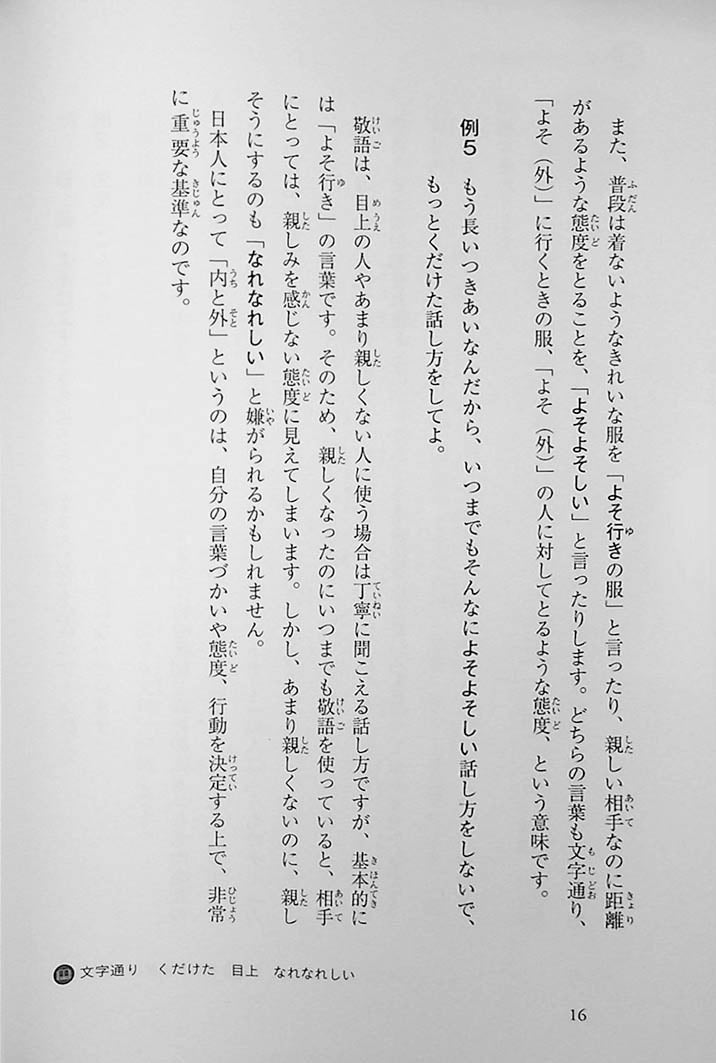 また、普段は着ないようなきれいな服を「よそ行きの服」と言ったり、親しい相手なのに距離
があるような態度をとることを、「よそよそしい」と言ったりします。どちらの言葉も文字通り、
「よそ（外）」に行くときの服、「よそ（外）」の人に対してとるような態度、という意味です。
例5 もう長いつきあいなんだから、いつまでもそんなによそよそしい話し方をしないで、
もっとくだけた話し方をしてよ。
敬語は、目上の人やあまり親しくない人に使う場合は丁寧に聞こえる話し方ですが、基本的に
は「よそ行き」の言葉です。そのため、親しくなったのにいつまでも敬語を使っていると、相手
にとっては、親しみを感じない態度に見えてしまいます。しかし、あまり親しくないのに、親し
そうにするのも「なれなれしい」と嫌がられるかもしれません。
日本人にとって「内と外」というのは、自分の言葉づかいや態度、行動を決定する上で、非常
に重要な基準なのです。
文字通り くだけた 目上 なれなれしい
16